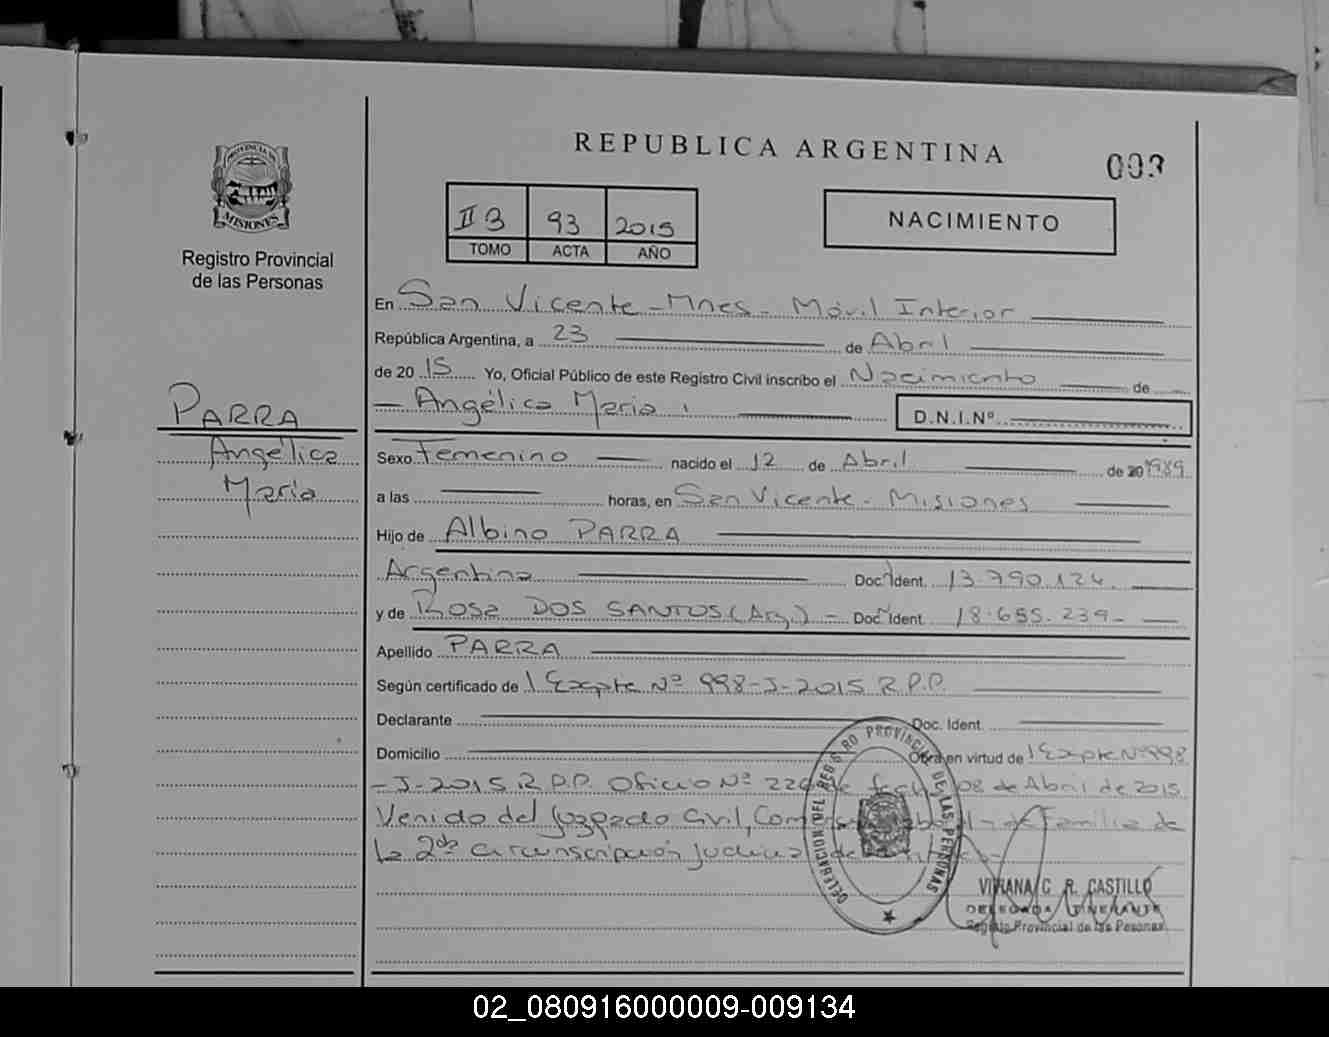 REPUBLICA ARGENTINA
003
PROVINCIA DE
MISIONES
Registro Provincial
de las Personas
II 3 93 2015
TOMO ACTA AÑO
NACIMIENTO
En San Vicente - Mnes - Móvil Interior
República Argentina, a 23 de Abril
de 2015 Yo, Oficial Público de este Registro Civil inscribo el Nacimiento de
Angélica Maria D.N.I.Nº
PARRA
Angélica
Maria
Sexo Femenino nacido el 12 de Abril de 1989
a las horas, en San Vicente - Misiones
Hijo de Albino PARRA
Argentina Doc. Ident. 13.790.124.
y de Rosa DOS SANTOS (Arg.) - Doc. Ident. 18.655.239-
Apellido PARRA
Según certificado de 1 Expte Nº 998-J-2015 R.P.P.
Declarante Doc. Ident.
Domicilio Obra en virtud de 1 Expte Nº 998
-J-2015 R.P.P. Oficio Nº de fecha 08 de Abril de 2015
Venido del Juzgado Civil, Comercial, Laboral y de Familia de
la 2da Circunscripción Judicial de
DELEGACION DEL REGISTRO PROVINCIAL DE LAS PERSONAS
VIVIANA C. R. CASTILLO
DELEGADA ITINERANTE
Registro Provincial de las Pesonas
02_080916000009-009134